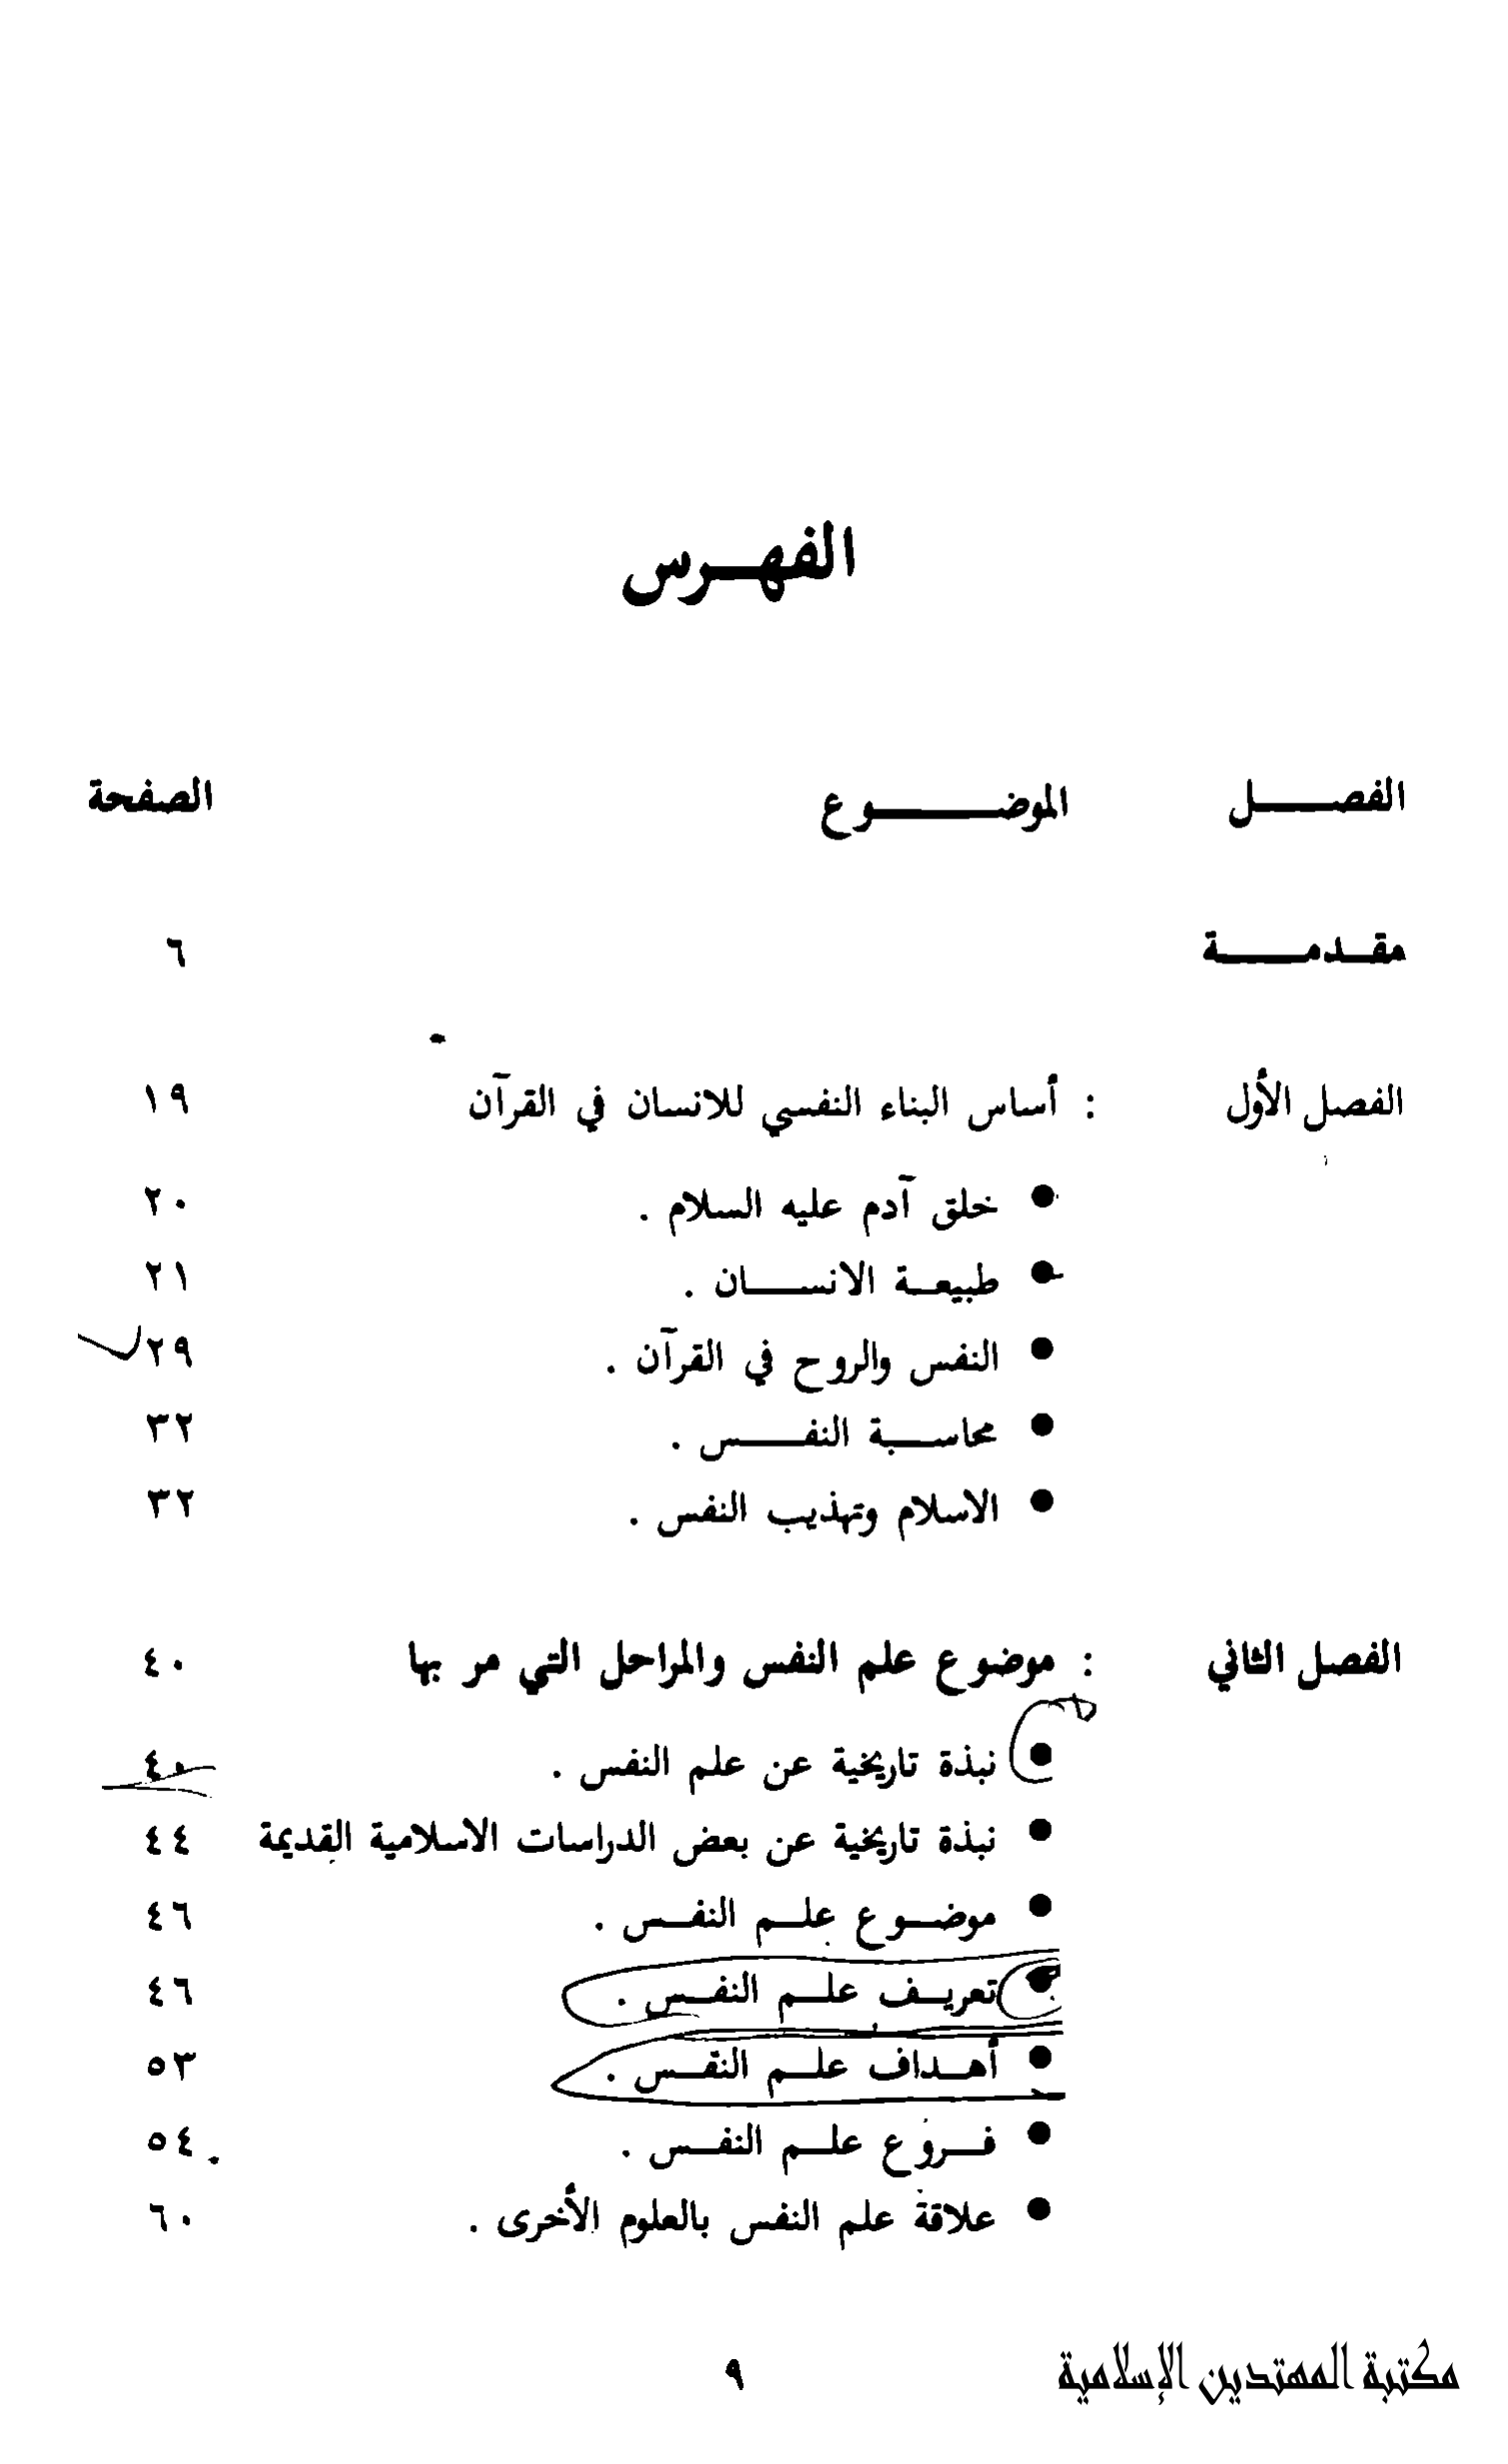 الفهرس
الفصل الموضوع الصفحة
مقدمة ٦
الفصل الأول : أساس البناء النفسي للانسان في القرآن ١٩
● خلق آدم عليه السلام . ٢٠
● طبيعة الانسان . ٢١
● النفس والروح في القرآن . ٢٩
● محاسبة النفس . ٣٢
● الاسلام وتهذيب النفس . ٣٢
الفصل الثاني : موضوع علم النفس والمراحل التي مر بها ٤٠
● نبذة تاريخية عن علم النفس . ٤٠
● نبذة تاريخية عن بعض الدراسات الاسلامية القديمة ٤٤
● موضوع علم النفس . ٤٦
● تعريف علم النفس . ٤٦
● أهداف علم النفس . ٥٣
● فروع علم النفس . ٥٤
● علاقة علم النفس بالعلوم الأخرى . ٦٠
٩
مكتبة المهتدين الإسلامية